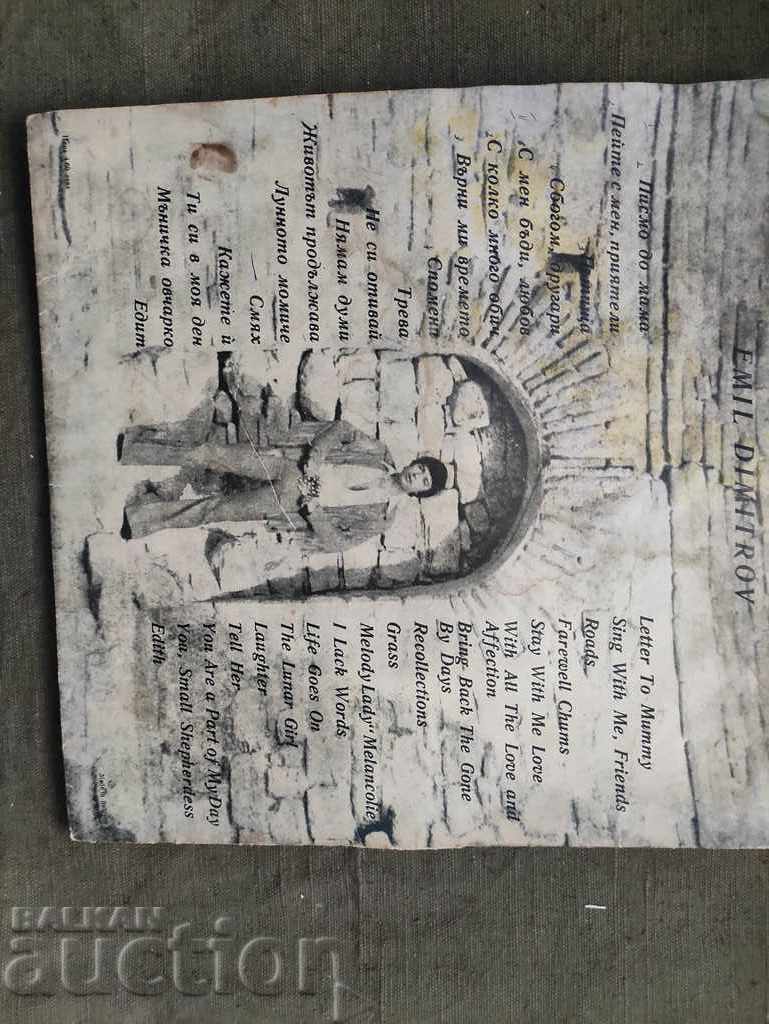 EMIL DIMITROV
Писмо до мама
Пейте с мен, приятели
Сбогом, другари
С мен бъди, любов
С колко много обич
Върни ми времето
Спомени
Трева
Не си отивай
Нямам думи
Животът продължава
Лунното момиче
Смях
Кажете ѝ
Ти си в моя ден
Мъничка овчарко
Едит
Letter To Mummy
Sing With Me, Friends
Roads
Farewell Chums
Stay With Me Love
With All The Love and
Affection
Bring Back The Gone
By Days
Recollections
Grass
Melody Lady "Melancolie
I Lack Words
Life Goes On
The Lunar Girl
Laughter
Tell Her
You Are a Part of MyDay
You, Small Shepherdess
Edith
BALKAN
auction